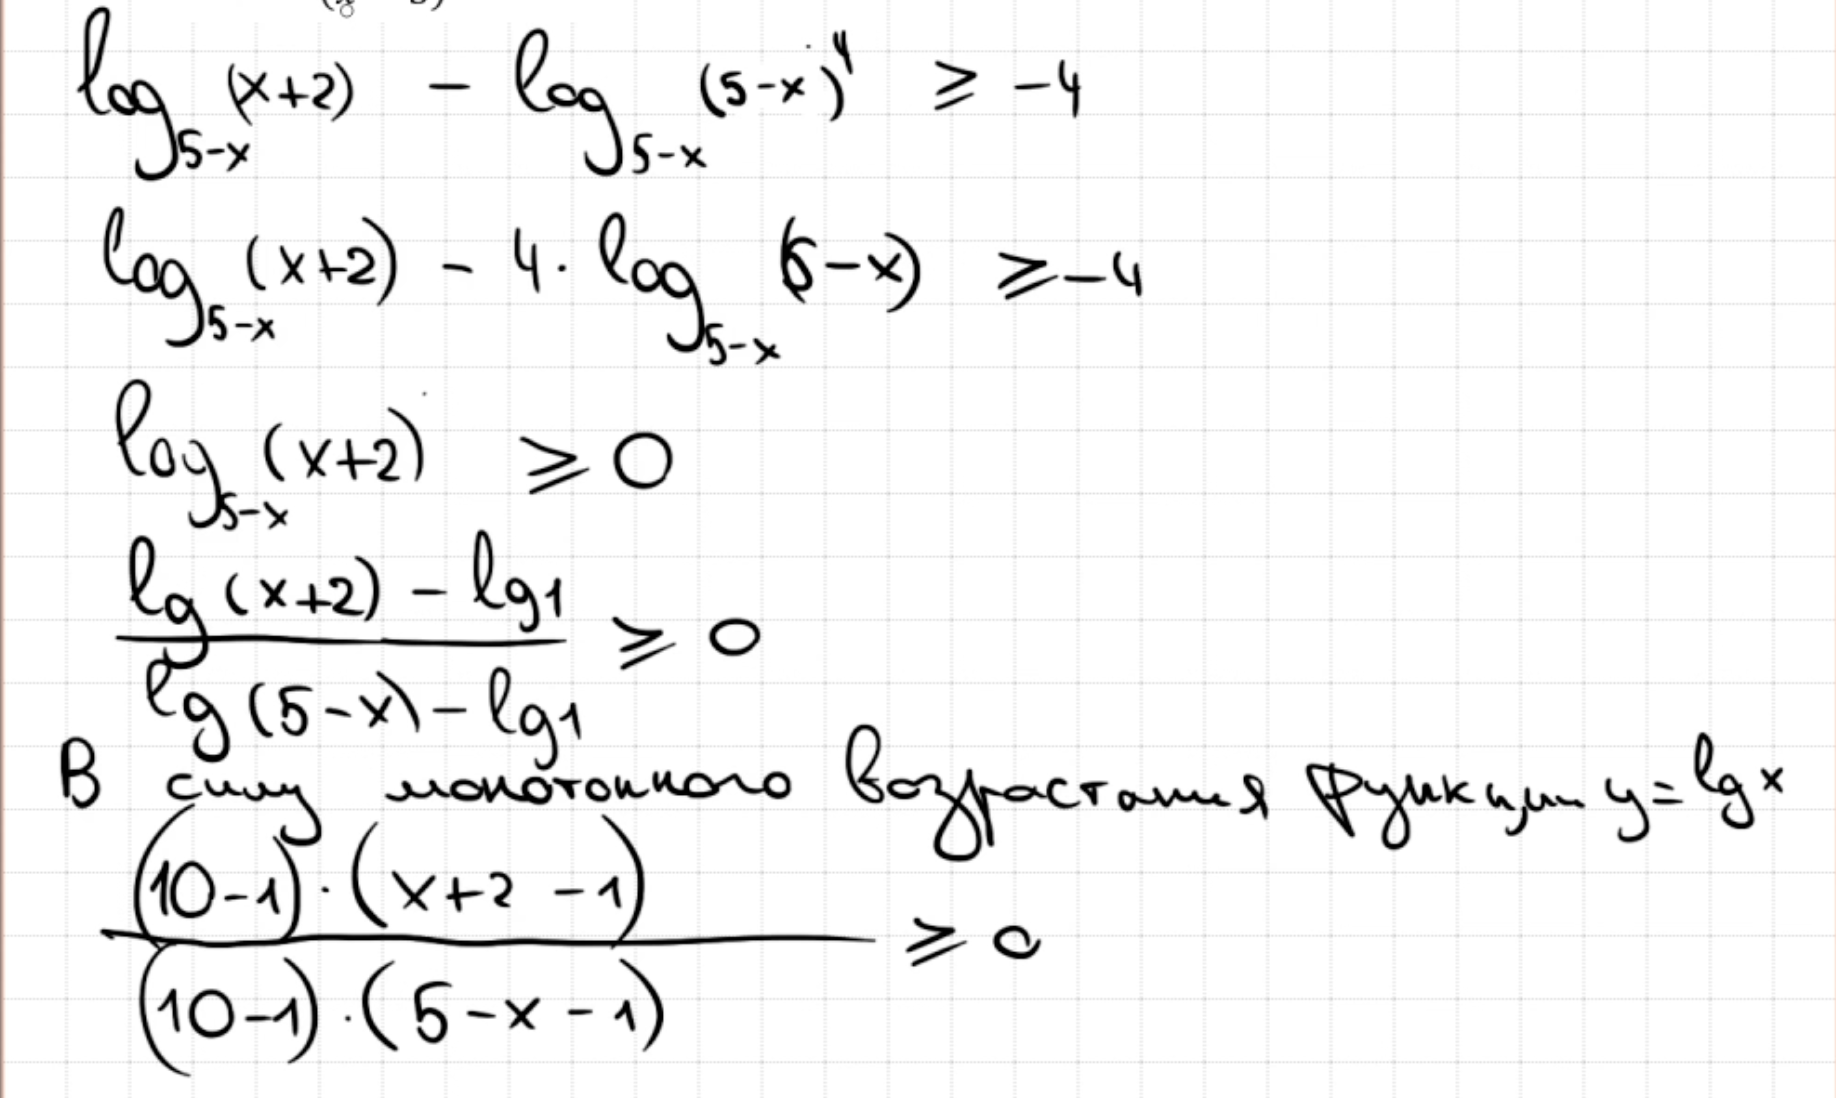 log₅₋ₓ (x+2) − log₅₋ₓ (5−x)⁴ ⩾ −4
log₅₋ₓ (x+2) − 4 · log₅₋ₓ (5−x) ⩾ −4
log₅₋ₓ (x+2) ⩾ 0
lg (x+2) − lg 1
⩾ 0
lg (5−x) − lg 1
В силу монотонного возрастания функции y = lg x
(10−1) · (x+2 −1)
⩾ 0
(10−1) · (5−x−1)